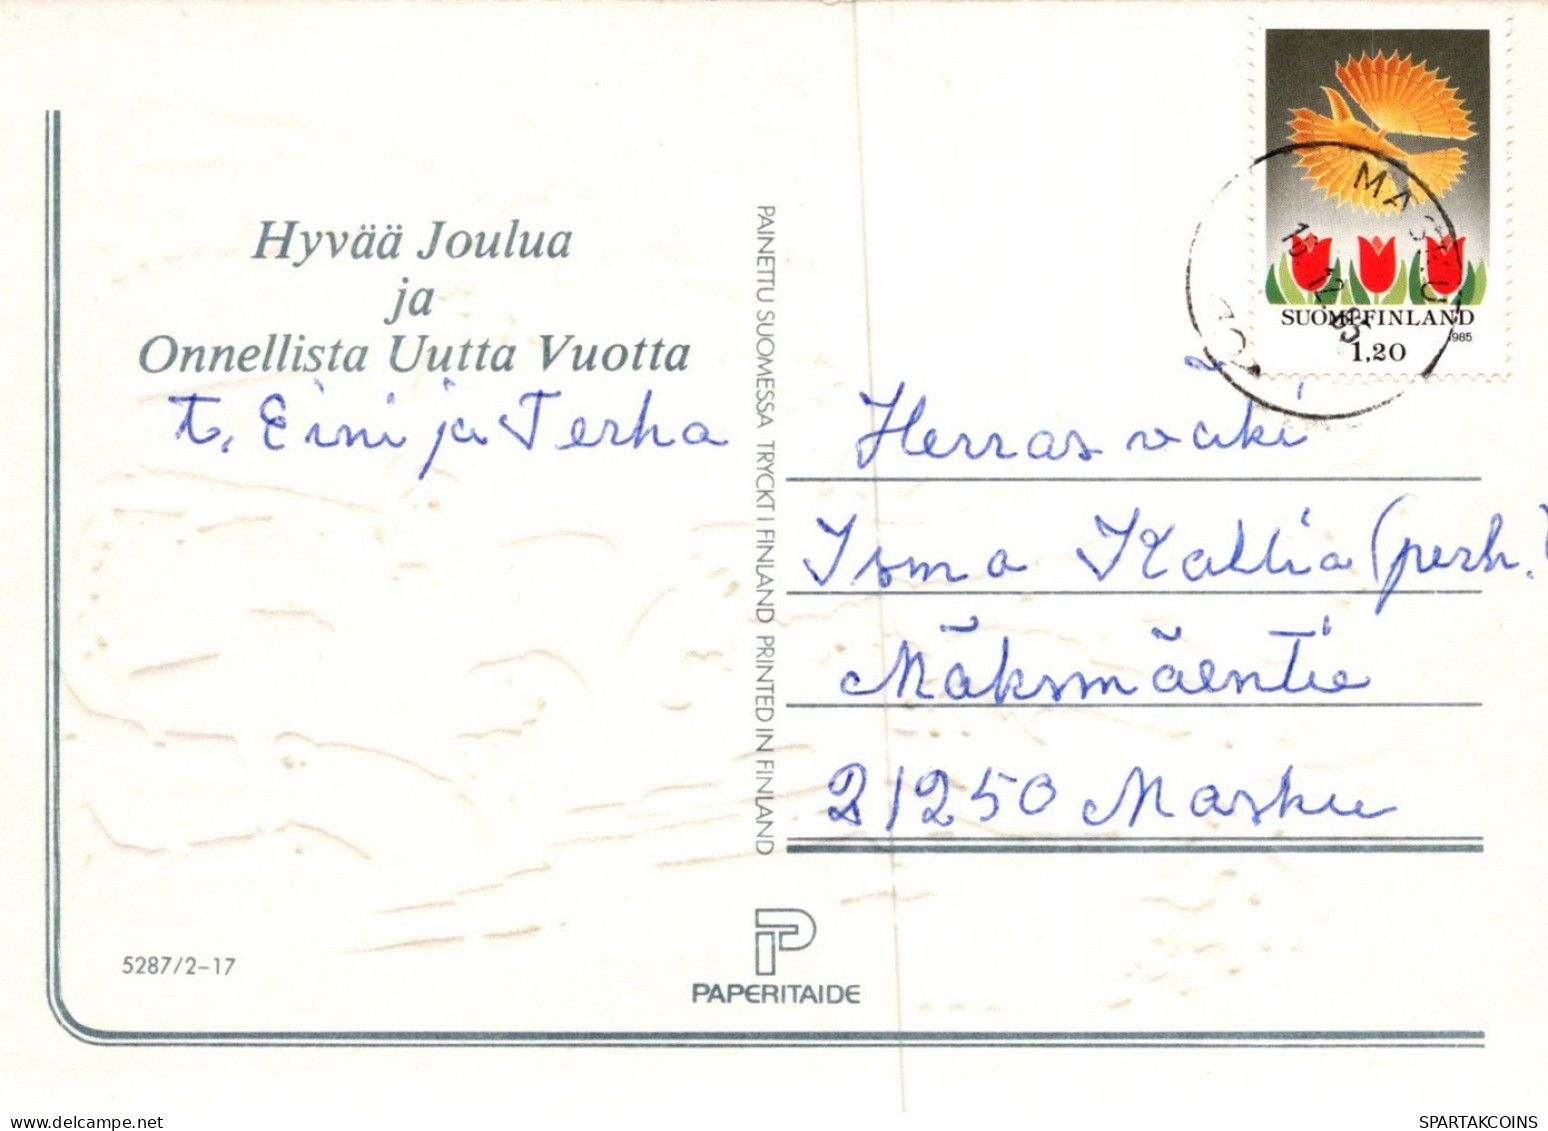 Hyvää Joulua
ja
Onnellista Uutta Vuotta
t. Eini ja Terha
PAINETTU SUOMESSA TRYCKT I FINLAND PRINTED IN FINLAND
SUOMI-FINLAND
1985
1,20
MASKU
Herrasväki
Isma Kallia (perh.)
Mäksmäentie
21250 Masku
5287/2-17
PAPERITAIDE
SPARTAKCOINS